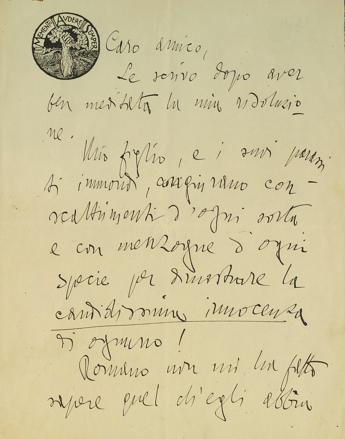 MEMENTO AUDERE SEMPER
Caro amico,
Le scrivo dopo aver
ben meditata la mia risoluzio-
ne.
Mio figlio, e i suoi parassi
ti immondi, congiurano con
scaltrimenti d'ogni sorta
e con menzogne d'ogni
specie per dimostrare la
candidissima innocenza
di ognuno!
Romano non mi ha fatto
sapere quel ch'egli abbia